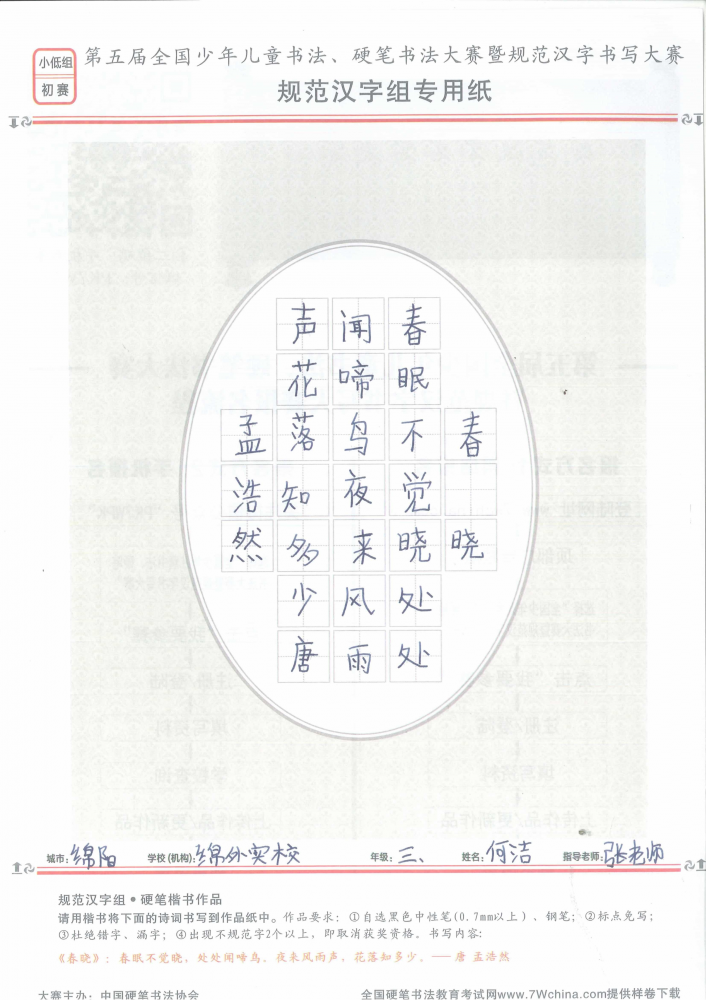 小低组
初赛
第五届全国少年儿童书法、硬笔书法大赛暨规范汉字书写大赛
规范汉字组专用纸
春晓
春眠不觉晓处处
闻啼鸟夜来风雨
声花落知多少唐
孟浩然
城市：绵阳 学校(机构)：绵外实校 年级：三、 姓名：何洁 指导老师：张老师
规范汉字组•硬笔楷书作品
请用楷书将下面的诗词书写到作品纸中。作品要求：①自选黑色中性笔(0.7mm以上)、钢笔；②标点免写；
③杜绝错字、漏字；④出现不规范字2个以上，即取消获奖资格。书写内容：
《春晓》：春眠不觉晓，处处闻啼鸟。夜来风雨声，花落知多少。—— 唐 孟浩然
大赛主办：中国硬笔书法协会 全国硬笔书法教育考试网www.7Wchina.com提供样卷下载